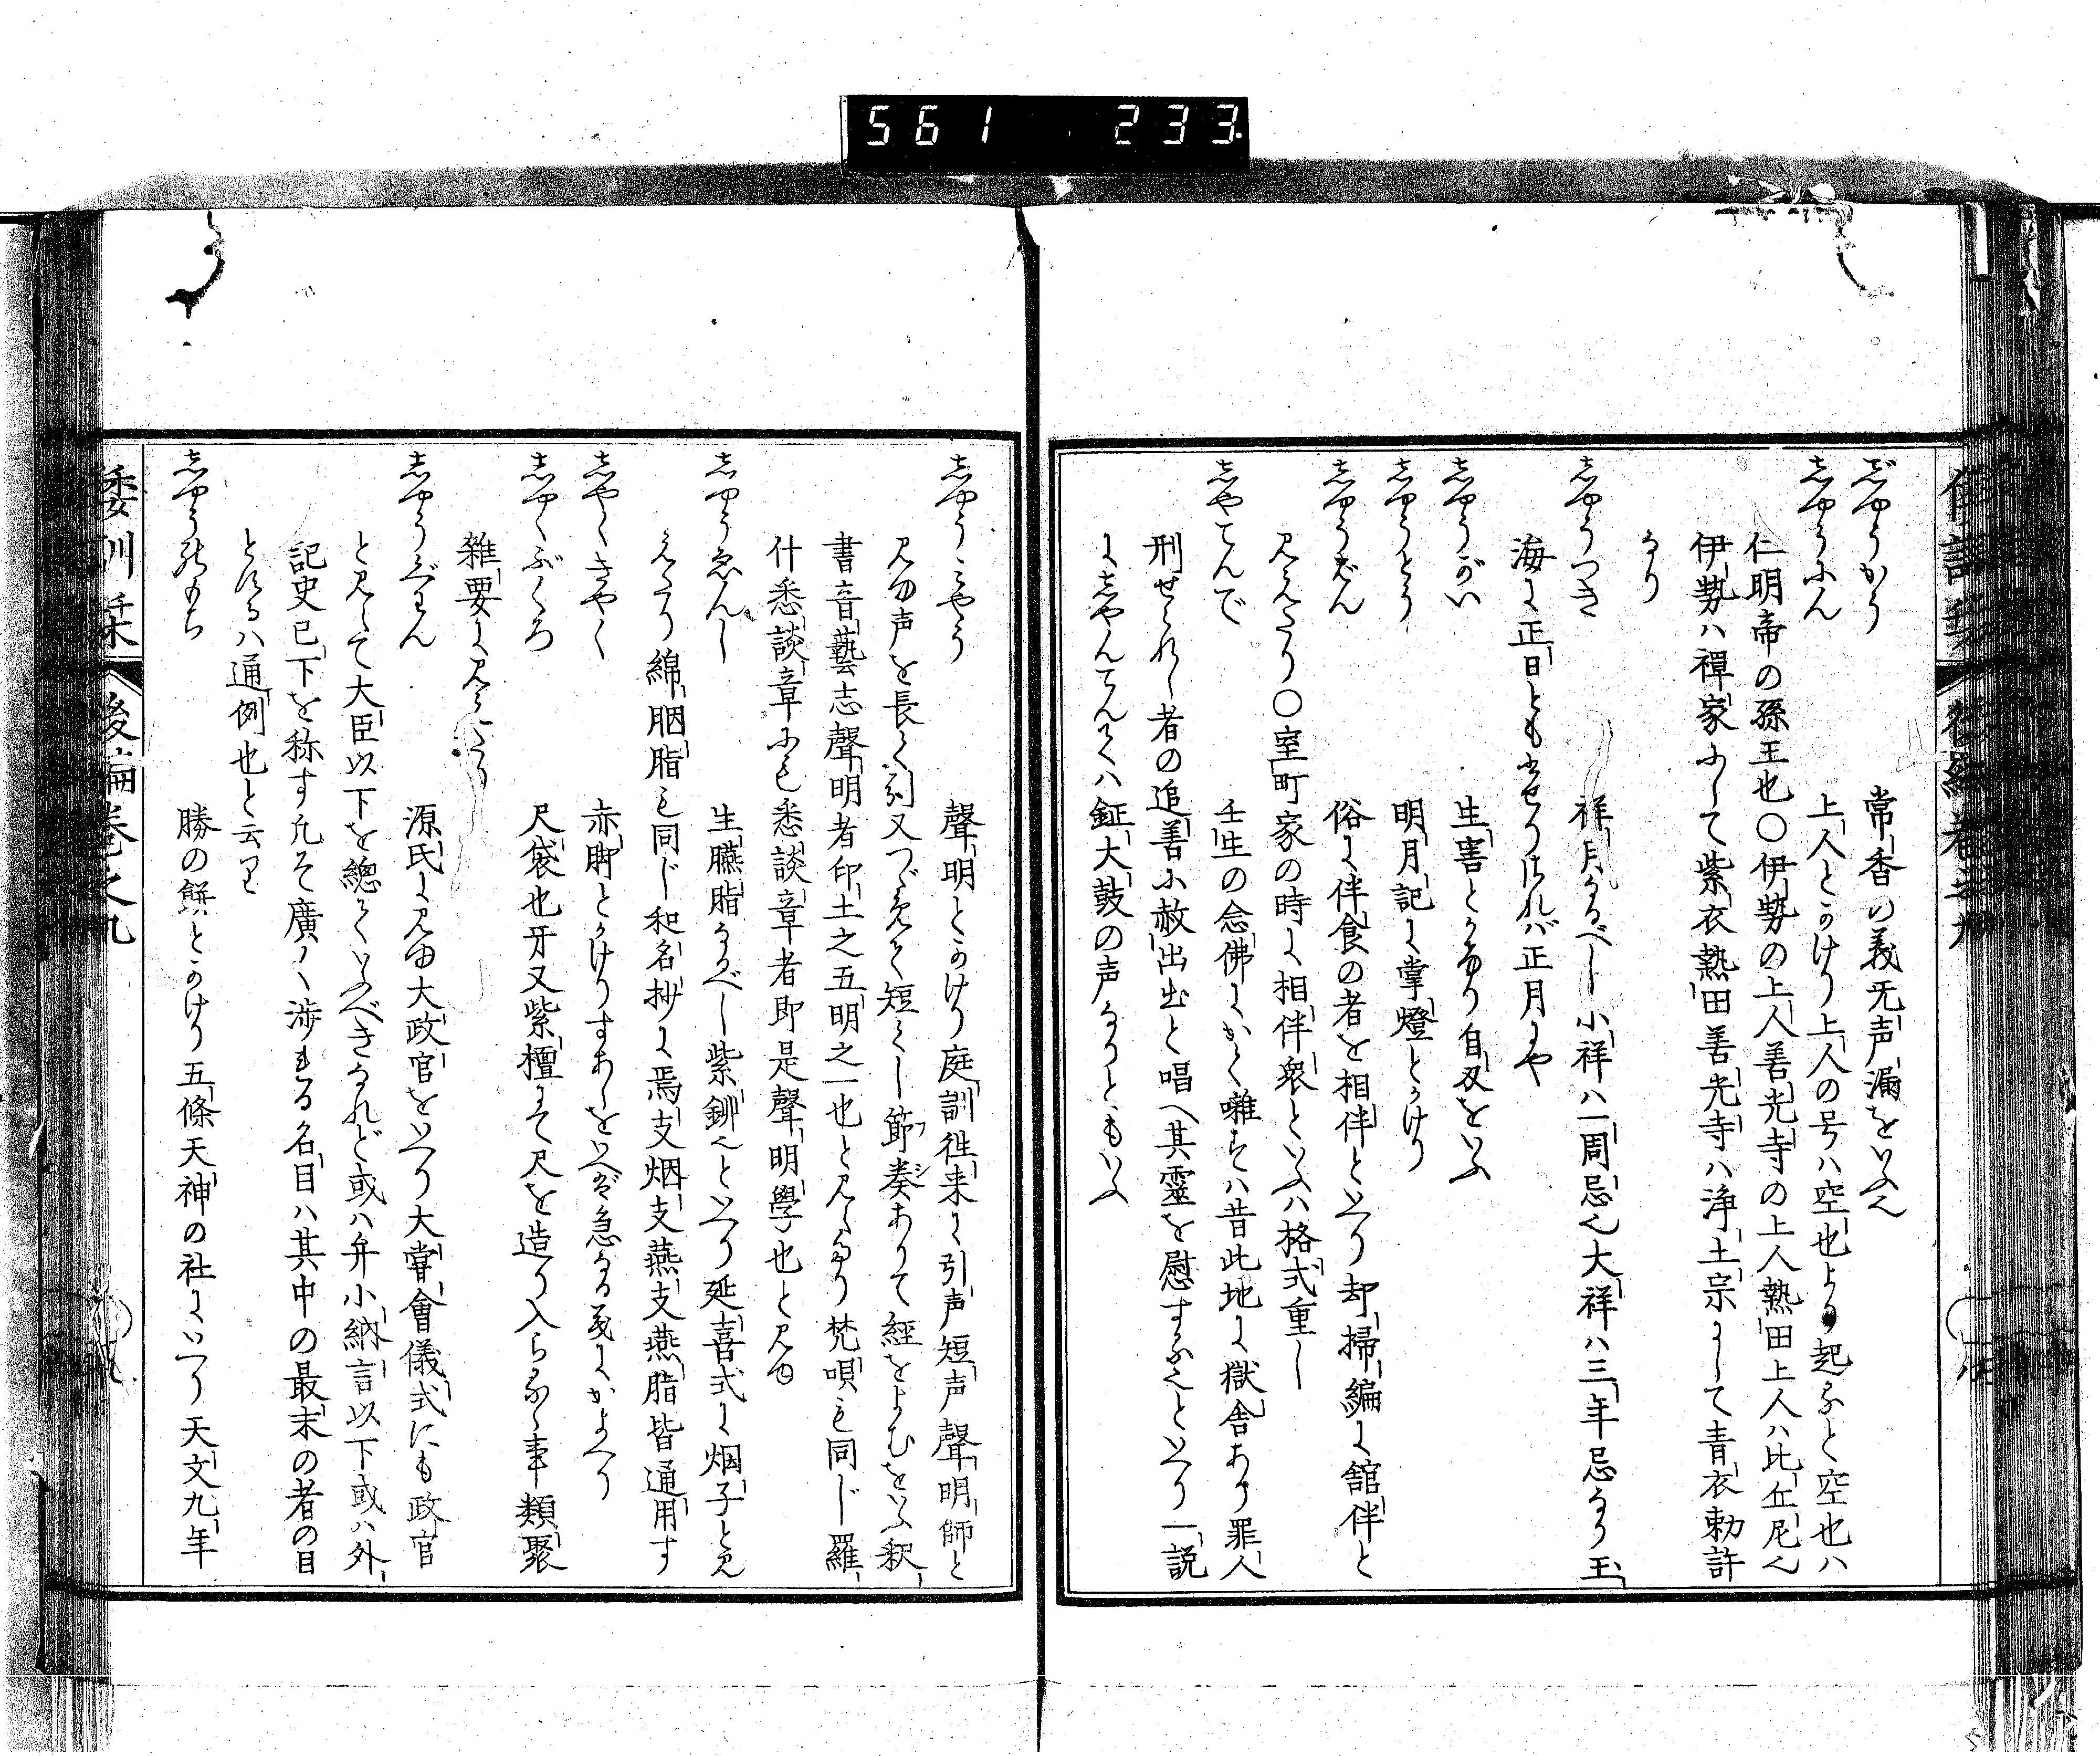 561 233
じやうかう 常香の義无声漏をいふ也
しやうにん 上人とかけり上人の号ハ空也より起るらと空也ハ
仁明帝の孫王也〇伊勢の上人善光寺の上人熱田上人ハ比丘尼也
伊勢ハ禅家にして紫衣熱田善光寺ハ浄土宗にして青衣勅許
なり
しやうつき 祥月なるべし小祥ハ一周忌也大祥ハ三年忌なり玉
海に正日ともせりされバ正月にや
しやうがい 生害とかけり自刃をいふ
しやうとう 明月記に掌燈とかけり
しやうばん 俗に伴食の者を相伴といへり却掃編に舘伴と
見えたり〇室町家の時に相伴衆といふハ格式重し
しやでんで 壬生の念佛にかく囃すハ昔此地に獄舎あり罪人
刑せられし者の追善に赦出出と唱へ其霊を慰するなりといへり一説
にしやんてんてんハ鉦大鼓の声なりともいふ
しやうみやう 聲明とかけり庭訓往来に引声短声聲明師と
見ゆ声を長く引又つゞめて短くし節奏ありて経をよむをいふ釈
書音藝志聲明者印土之五明之一也と見えたり梵唄も同じ羅
什悉談章にも悉談章者即是聲明學也と見ゆ
しやうゑんし 生臙脂なるべし紫鉚也といへり延喜式に烟子と見
えたり綿胭脂も同じ和名抄に焉支烟支燕支燕脂皆通用す
しやくきやく 赤脚とかけりすあしをいへど急なる意にかよへり
しやくぶくろ 尺袋也牙又紫檀にて尺を造り入らるゝ事類聚
雑要に見えたり
しやうぐわん 源氏に見ゆ大政官をいへり大嘗會儀式にも政官
と見えて大臣以下を總ていふべきなれど或ハ弁小納言以下或ハ外
記史已下を称す凡そ廣く渉れる名目ハ其中の最末の者の目
とするハ通例也と云り
しやうのもち 勝の餅とかけり五條天神の社にいへり天文九年
倭訓栞 後編巻之九